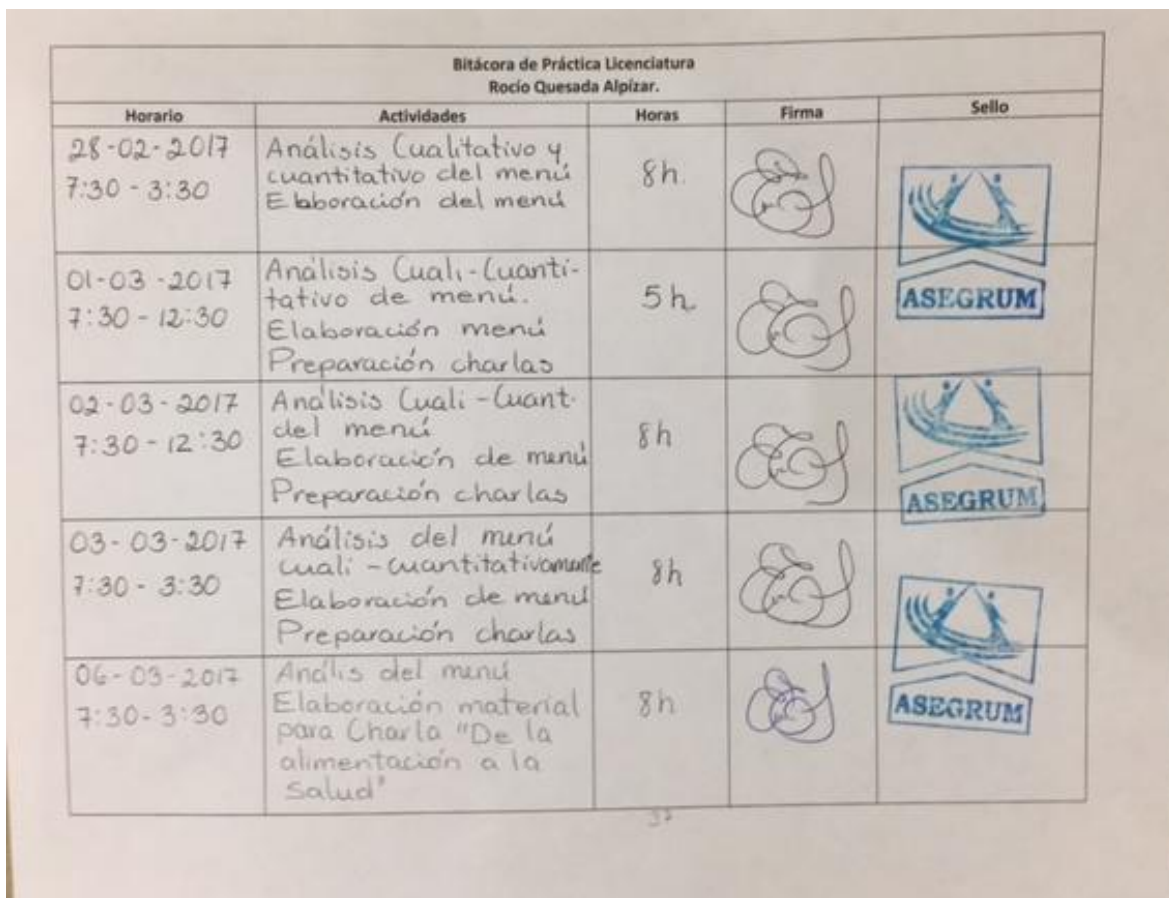 Bitácora de Práctica Licenciatura
Rocío Quesada Alpízar.
Horario Actividades Horas Firma Sello
28-02-2017
7:30 - 3:30
Análisis Cualitativo y
cuantitativo del menú
Elaboración del menú
8h.
01-03-2017
7:30 - 12:30
Análisis Cuali-Cuanti-
tativo de menú.
Elaboración menú
Preparación charlas
5h.
ASEGRUM
02-03-2017
7:30 - 12:30
Análisis Cuali-Cuant.
del menú
Elaboración de menú
Preparación charlas
8h
ASEGRUM
03-03-2017
7:30 - 3:30
Análisis del menú
cuali-cuantitativamente
Elaboración de menú
Preparación charlas
8h
06-03-2017
7:30-3:30
Anális del menú
Elaboración material
para Charla "De la
alimentación a la
Salud"
8h
ASEGRUM